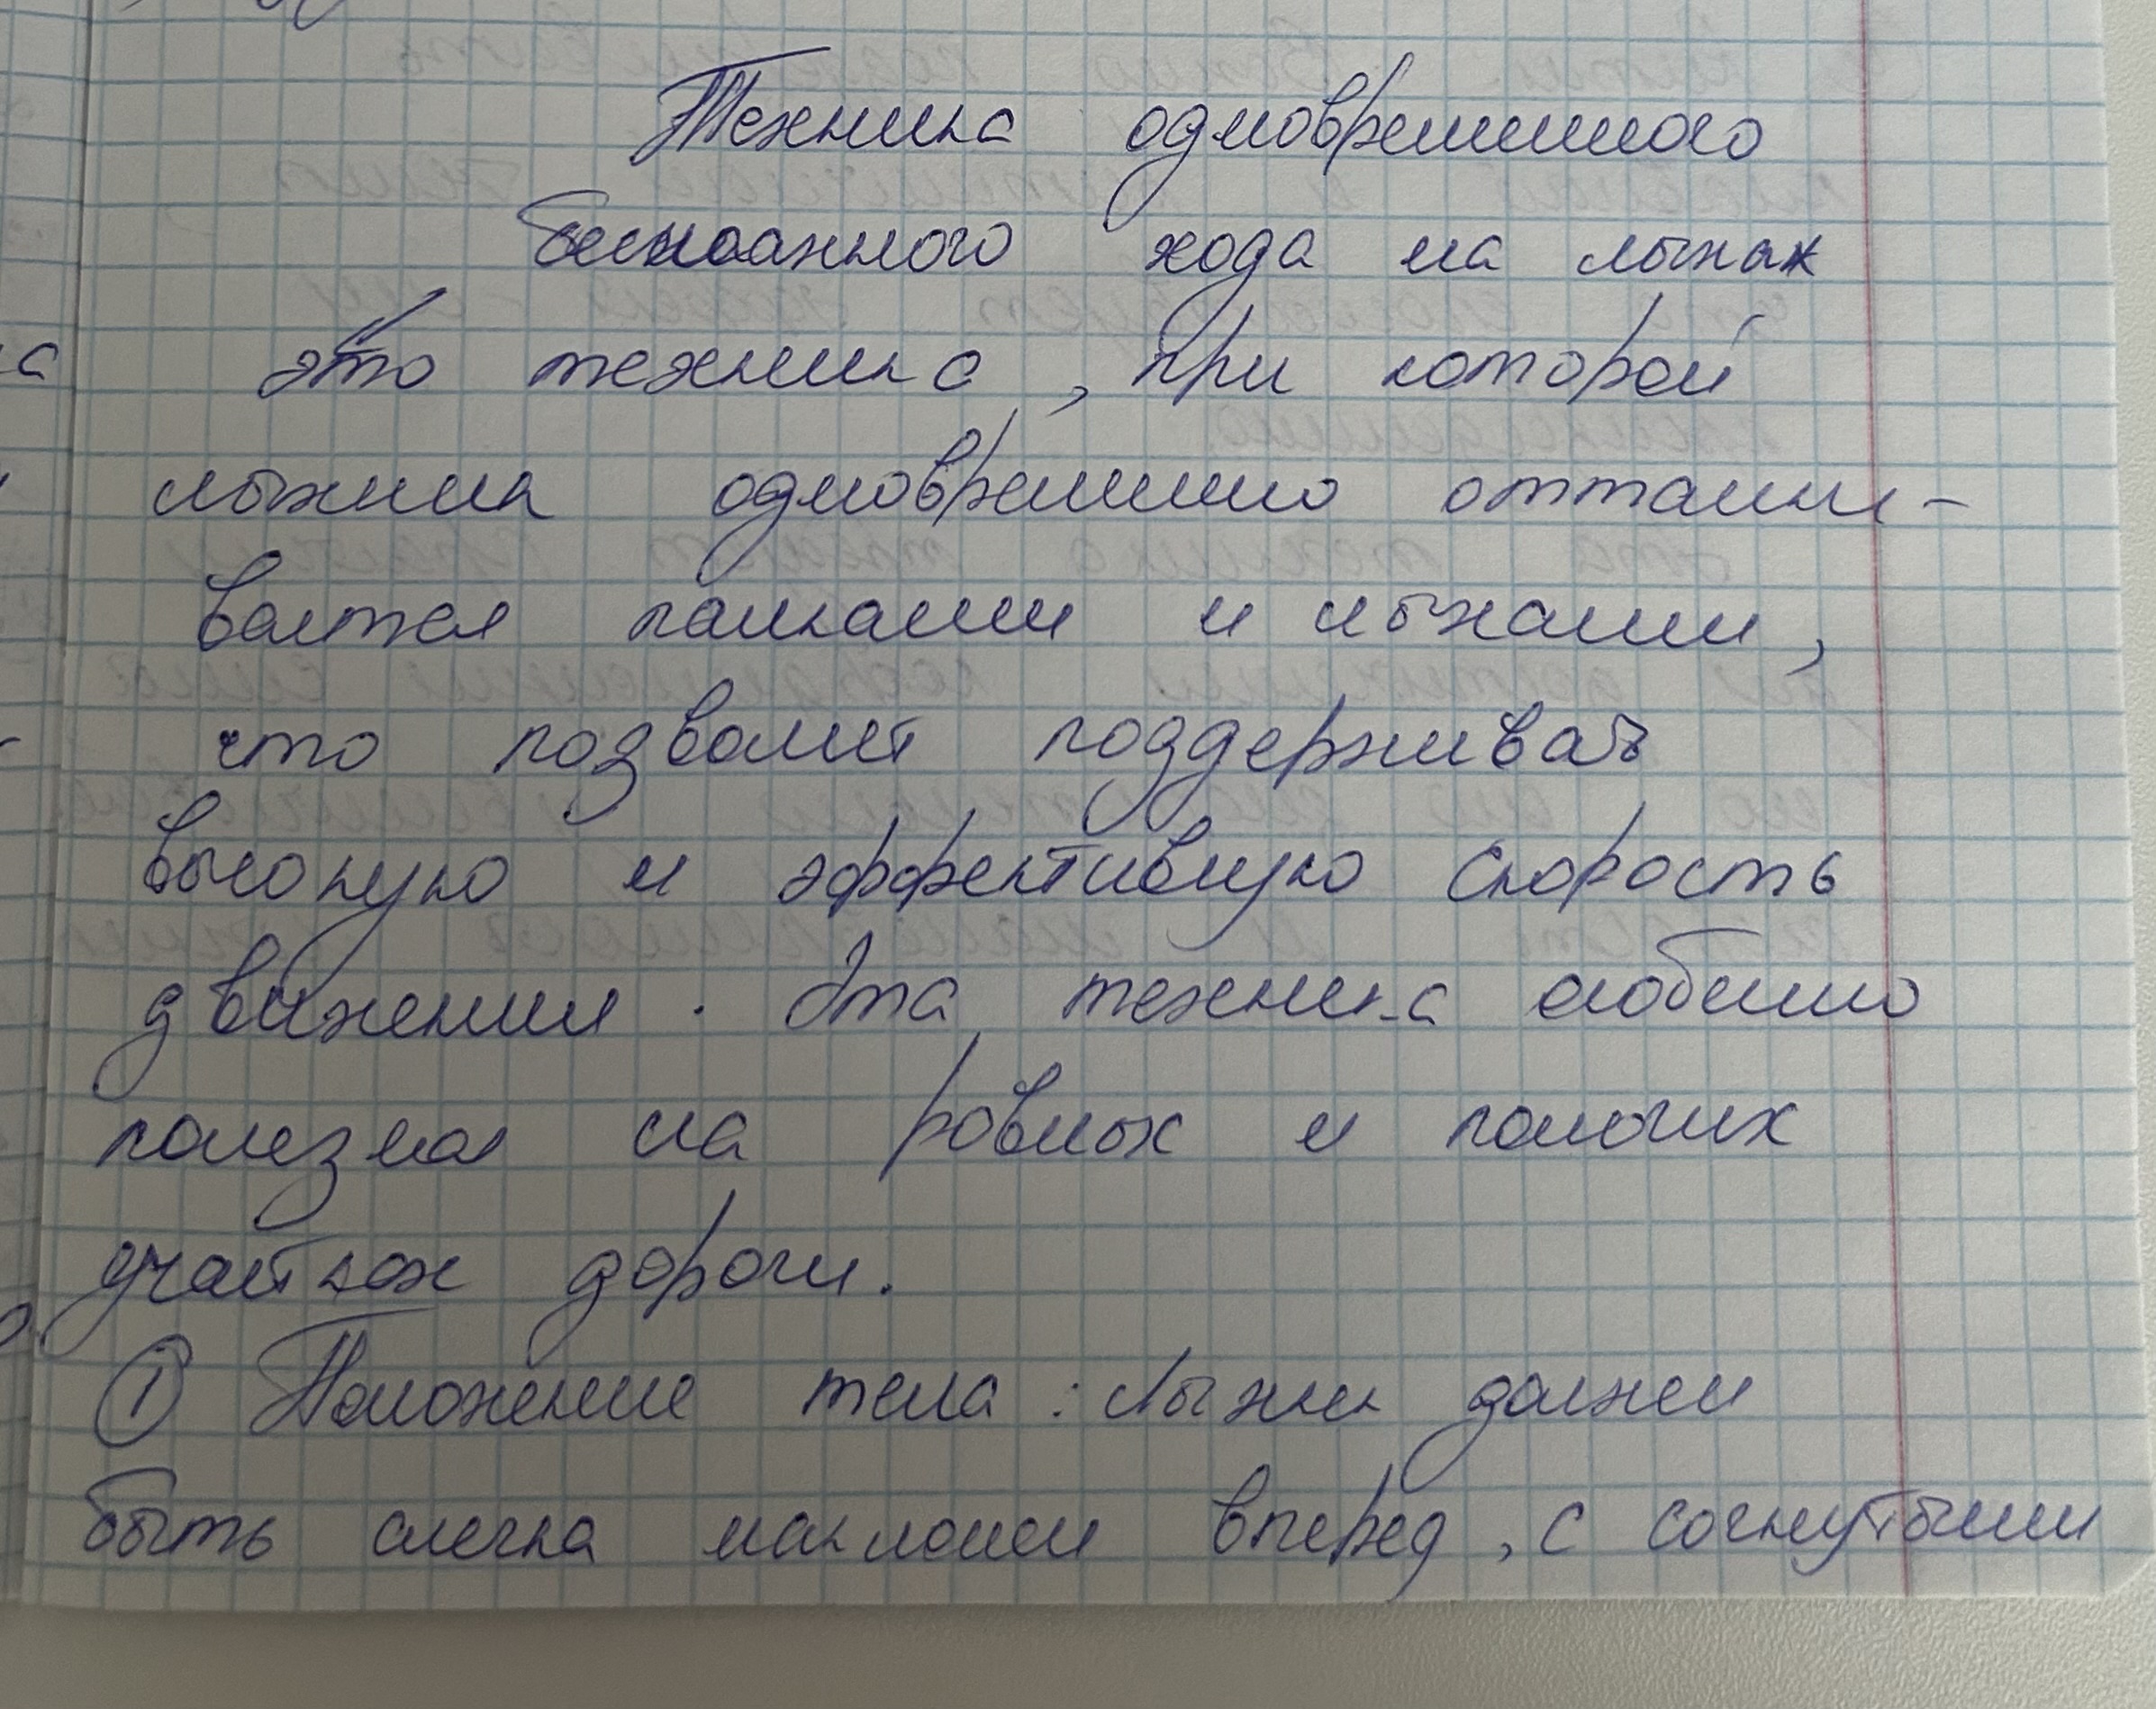 Техника одновременного
бесшажного хода на лыжах
это техника, при которой
лыжник одновременно отталки-
вается палками и лыжами,
что позволяет поддерживать
высокую и эффективную скорость
движения. Эта техника особенно
полезна на ровных и пологих
участках дороги.
① Положение тела: Лыжник должен
быть слегка наклонен вперед, с согнутыми